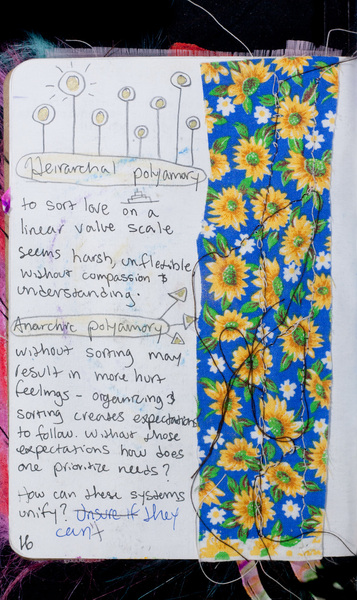 Heirarchal polyamory
to sort love on a
linear value scale
seems harsh, unflexible
without compassion &
understanding.
Anarchic polyamory
without sorting may
result in more hurt
feelings - organizing &
sorting creates expectations
to follow. Without those
expectations how does
one prioritize needs?
How can these systems
unify? Unsure if they
can't
16